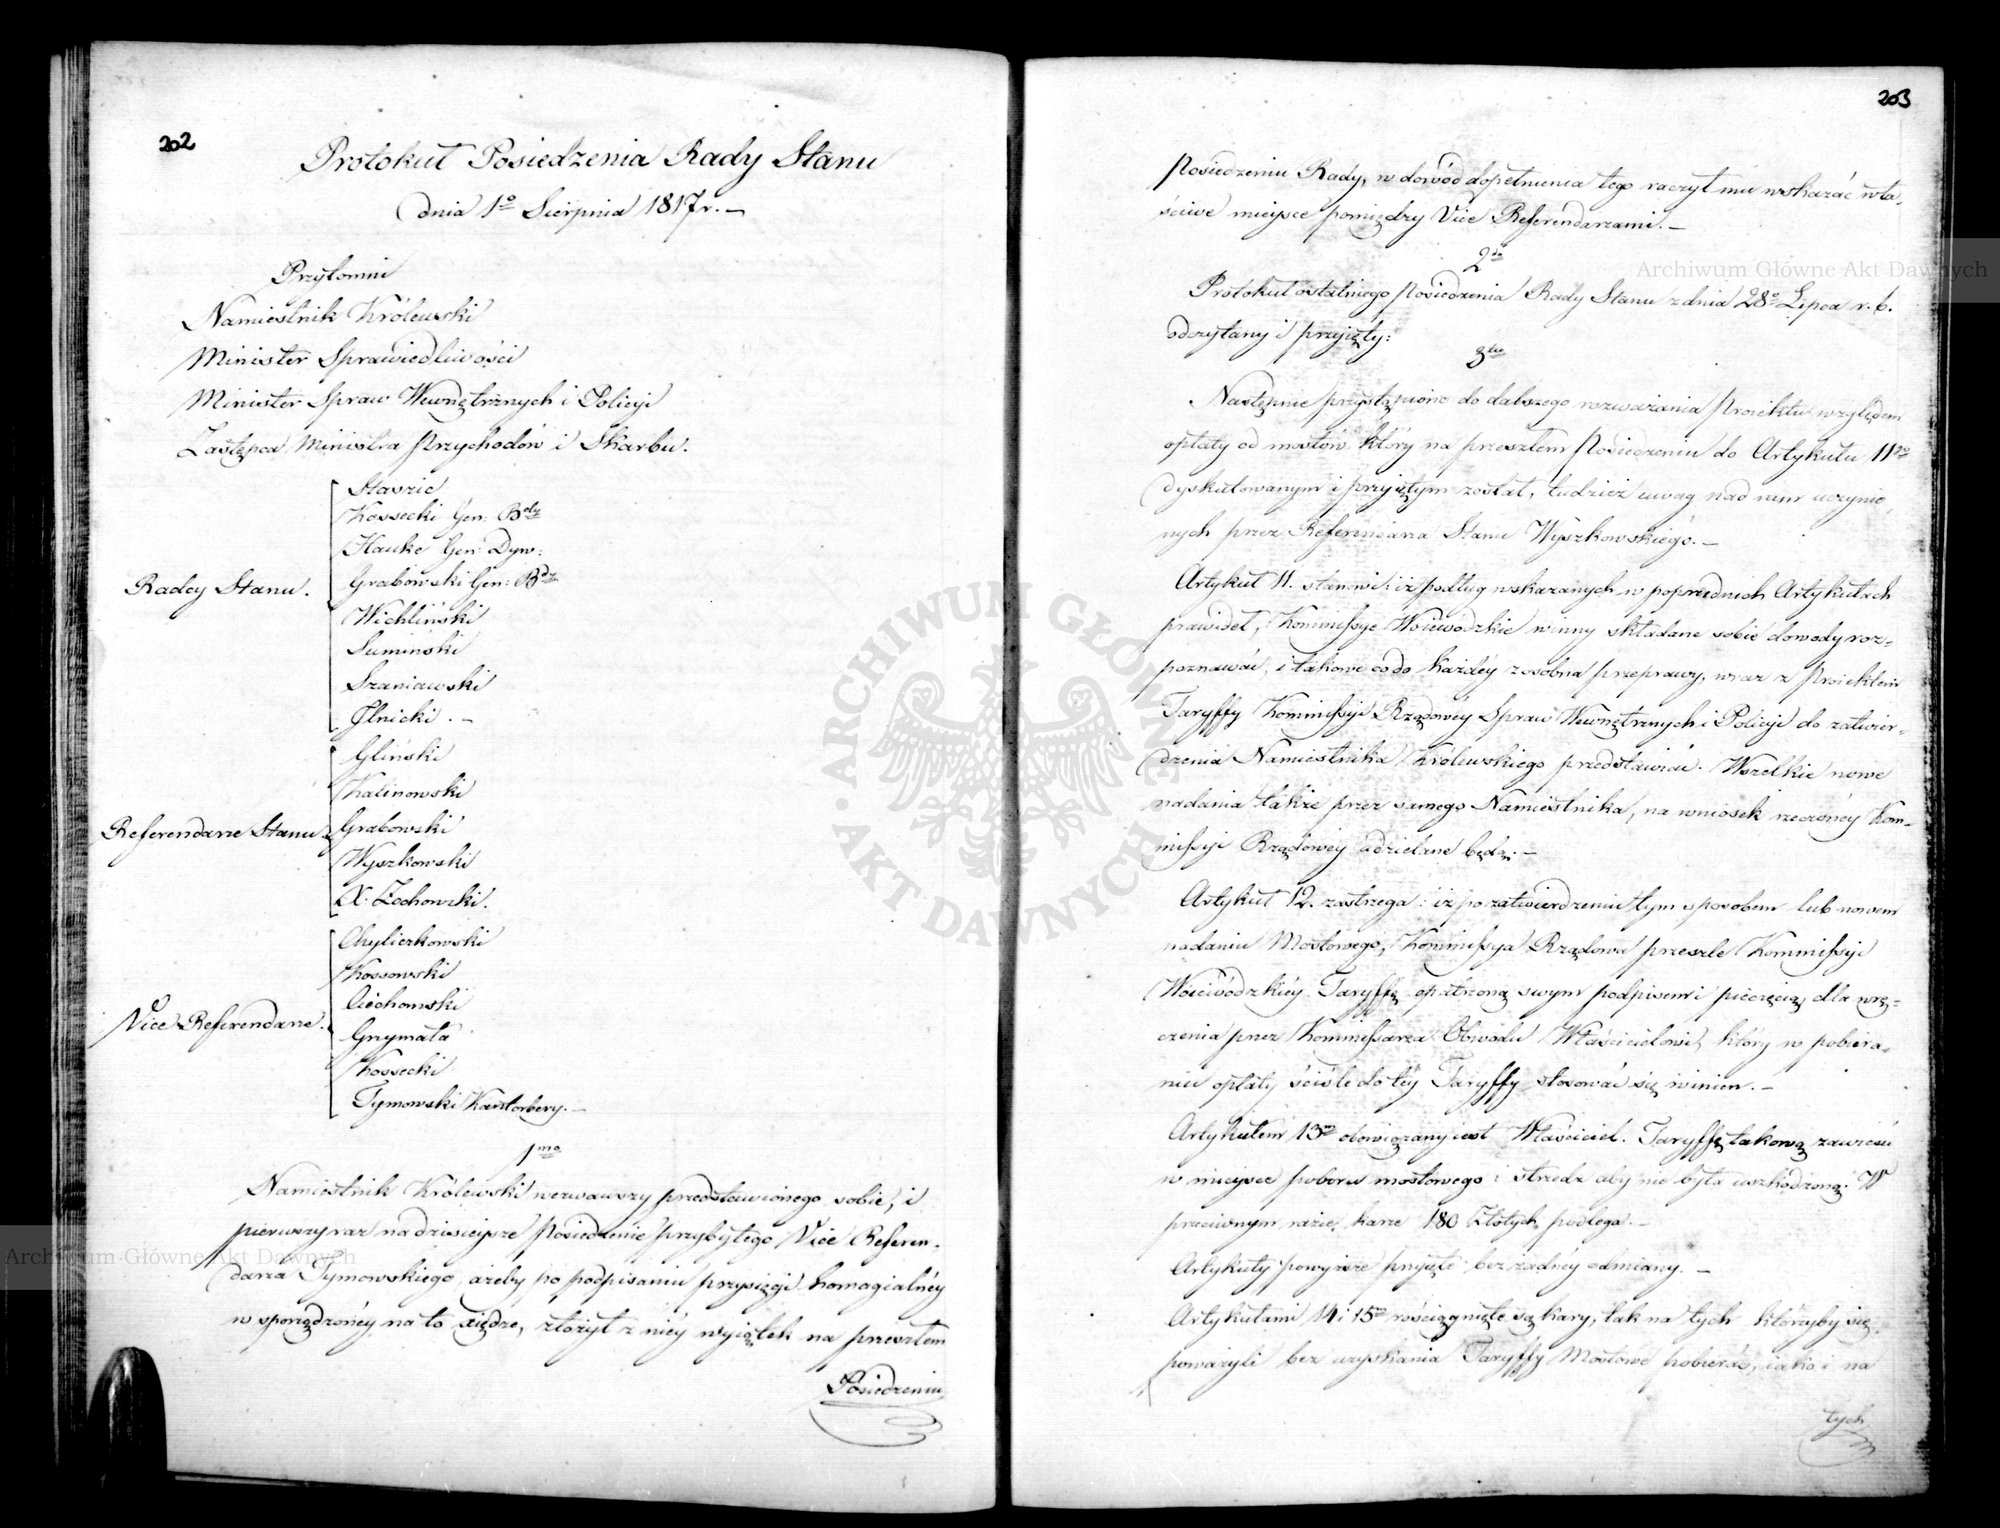 202
Protokuł Posiedzenia Rady Stanu
dnia 1o Sierpnia 1817 r. —
Przytomni
Namiestnik Królewski
Minister Sprawiedliwości
Minister Spraw Wewnętrznych i Policyi
Zastępca Ministra Przychodów i Skarbu.
Radcy Stanu.
Staszic
Kossecki Gen: Bdy
Hauke Gen: Dyw:
Grabowski Gen: Bdy
Wichliński
Sumiński
Szaniawski
Ilnicki. —
Referendarze Stanu.
Gliński
Kalinowski
Grabowski
Wyszkowski
X. Zochowski.
Vice Referendarze.
Chyliczkowski
Kossowski
Ciechomski
Grzymała
Kossecki
Tymowski Kantorbery. —
1mo
Namiestnik Królewski wezwawszy przedstawionego sobie, i
pierwszy raz na dzisieysze Posiedzenie przybyłego Vice Referen-
darza Tymowskiego, ażeby po podpisaniu przysięgi homagialnéy
w sporządzonéy na to xiędze, złożył z niéy wyiątek na przeszłem
Posiedzeniu
203
Posiedzeniu Rady, w dowód dopełnienia tego raczył mu wskazać wła-
ściwe mieysce pomiędzy Vice Referendarzami. —
2do
Protokuł ostatniego Posiedzenia Rady Stanu z dnia 28o Lipca r. b.
odczytany i przyięty:
3tio
Następnie przystąpiono do dalszego rozważania Proiektu względem
opłaty od mostów, który na przeszłem Posiedzeniu do Artykułu 11go
dyskutowanym i przyiętym został, tudzież uwag nad nim uczynio-
nych przez Referendarza Stanu Wyszkowskiego. —
Artykuł 11. stanowi: iż podług wskazanych w poprzednich Artykułach
prawideł, Kommissye Woiewódzkie winny składane sobie dowody roz-
poznawać, i takowe co do każdéy z osobna przeprawy, wraz z Proiektem
Taryffy Kommissyi Rządowéy Spraw Wewnętrznych i Policyi do zatwier-
dzenia Namiestnika Królewskiego przedstawiać. Wszelkie nowe
nadania także przez samego Namiestnika, na wniosek rzeczonéy Kom-
missyi Rządowéy udzielane będą. —
Artykuł 12. zastrzega: iż po zatwierdzeniu tym sposobem lub nowem
nadaniu Mostowego, Kommissya Rządowa prześle Kommissyi
Woiewódzkiéy Taryffę opatrzoną swym podpisem i pieczęcią, dla wrę-
czenia przez Kommissarza Obwodu Właścicielowi, który w pobiera-
niu opłaty ściśle do téy Taryffy stosować się winien. —
Artykułem 13m obowiązany iest Właściciel Taryffę takową zawiesić
w mieysce poboru mostowego i strzedz aby nie była uszkodzoną: W
przeciwnym razie karze 180 Złotych podlega. —
Artykuły powyższe przyięte bez żadnéy odmiany. —
Artykułami 14 i 15m rościągnięte są kary, tak na tych którzyby się
poważyli bez uzyskania Taryffy Mostowe pobierać, iako i na
tych
Archiwum Główne Akt Dawnych
Archiwum Główne Akt Dawnych
ARCHIWUM GŁÓWNE · AKT DAWNYCH ·